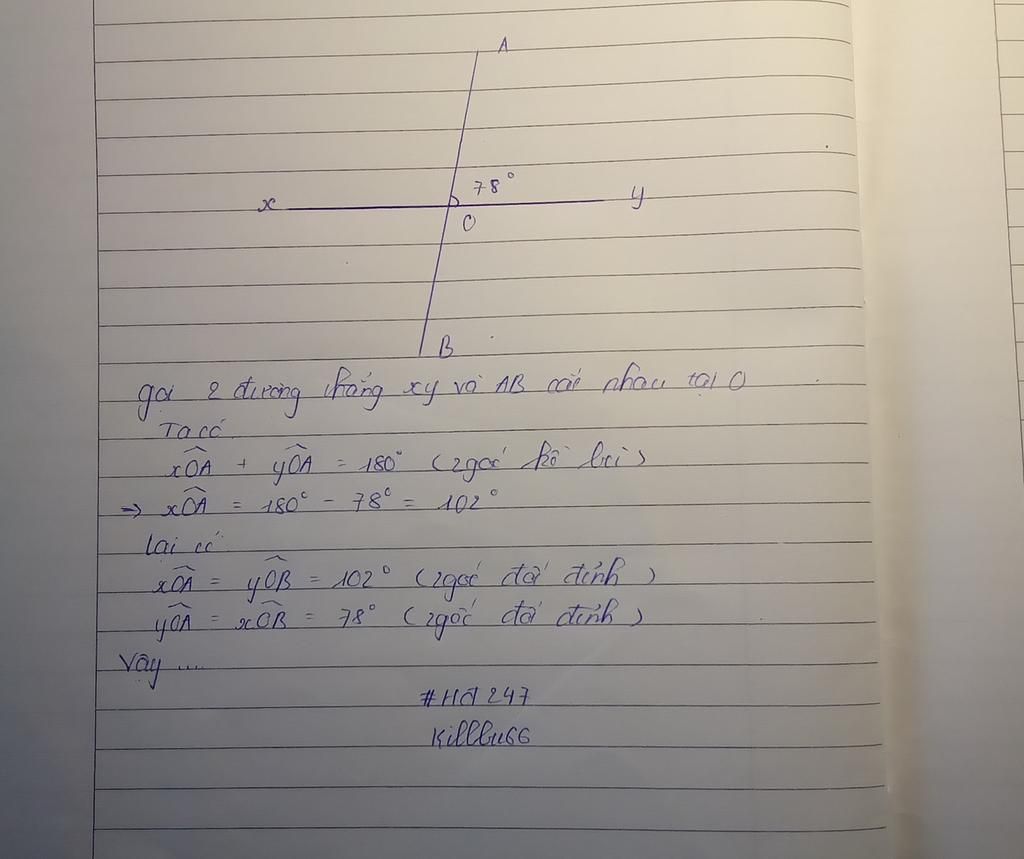 A
78°
x
y
O
B
gọi 2 đường thẳng xy và AB cắt nhau tại O
Ta có
xÔA + yÔA = 180° (2góc kề bù)
→ xÔA = 180° - 78° = 102°
lại có
xÔA = yÔB = 102° (2góc đối đỉnh)
yÔA = xÔB = 78° (2góc đối đỉnh)
Vậy ....
#Hđ247
Killbu66